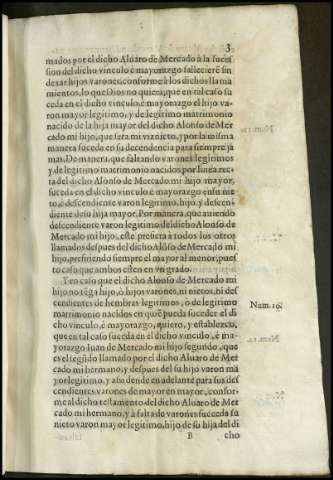 3
mados por el dicho Aluaro de Mercado à la suces
sion del dicho vinculo è mayorazgo fallecierẽ sin
dexar hijos varones, conforme à los dichos llama
mientos, lo que Dios no quiera, que en tal caso su
ceda en el dicho vinculo, è mayorazgo el hijo va-
ron mayor legitimo, y de legitimo matrimonio
nacido de la hija mayor del dicho Alonso de Mer
cado mi hijo, que sera mi viznieto, y por la misma
manera suceda en su decendencia para siempre jà
mas. De manera, que faltando varones legitimos
y de legitimo matrimonio nacidos por linea rec-
ta del dicho Alonso de Mercado mi hijo mayor,
suceda en el dicho vinculo è mayorazgo en su nie-
to, è descendiente varon legitimo, hijo, y descen-
diente de su hija mayor. Por manera, que auiendo
descendiente varon legitimo del dicho Alonso de
Mercado mi hijo, este prefiera à todos los otros
llamados despues del dicho Alõso de Mercado mi
hijo, prefiriendo siempre el mayor al menor, pues
to caso que ambos esten en vn grado.
Y en caso que el dicho Alonso de Mercado mi
hijo no tẽga hijo, ò hijos varones, ni nietos, ni des
cendientes de hembras legitimos, ò de legitimo
matrimonio nacidos en quiẽ pueda suceder el di
cho vinculo, è mayorazgo, quiero, y establezco,
que en tal caso suceda en el dicho vinculo, è ma-
yorazgo Iuan de Mercado mi hijo segundo, que
es el segũdo llamado por el dicho Aluaro de Mer
cado mi hermano, y despues del su hijo varon ma
yor legitimo, y ahi dende en adelante para sus des
cendientes varones de mayor en mayor, confor-
me al dicho testamento del dicho Aluaro de Mer
cado mi hermano, y à falta de varones suceda su
nieto varon mayor legitimo, hijo de su hija del di
Num. 19.
B
cho